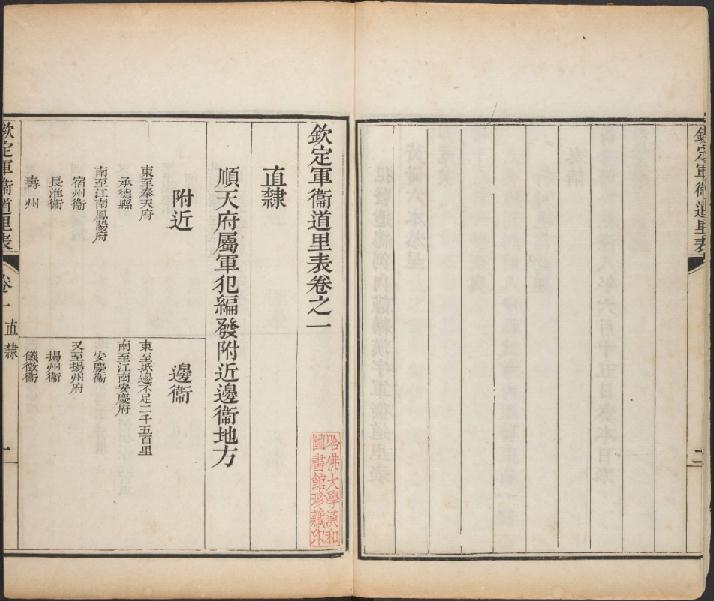 欽定軍衞道里表
二
欽定軍衞道里表卷之一
直隸
順天府屬軍犯編發附近邊衞地方
附近
東至奉天府
承德縣
南至江南鳳陽府
宿州衞
長淮衞
壽州
邊衞
東至抵邊不足二千五百里
南至江南安慶府
安慶衞
又至揚州府
揚州衞
儀徵衞
欽定軍衞道里表
卷一
直隸
一
哈佛大學漢和
圖書館珍藏印